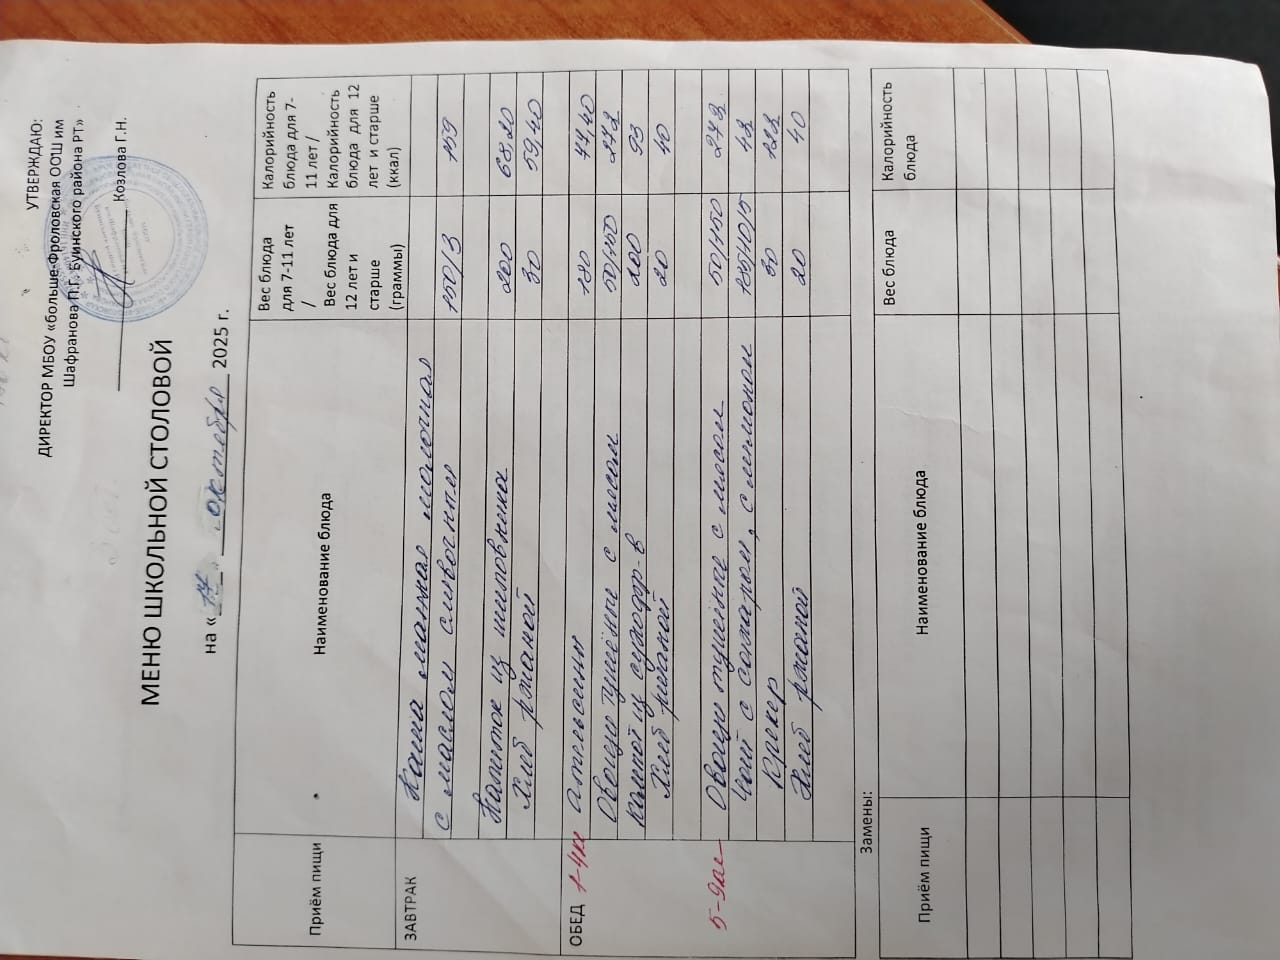 УТВЕРЖДАЮ:
ДИРЕКТОР МБОУ «больше-Фроловская ООШ им
Шафранова П.Г. Буинского района РТ»
Козлова Г.Н.
МЕНЮ ШКОЛЬНОЙ СТОЛОВОЙ
на «17» октября 2025 г.
Приём пищи Наименование блюда Вес блюда для 7-11 лет / Вес блюда для 12 лет и старше (граммы) Калорийность блюда для 7-11 лет / Калорийность блюда для 12 лет и старше (ккал)
ЗАВТРАК Каша манная молочная
с маслом сливочным 150/3 159
Напиток из шиповника 200 68,20
Хлеб ржаной 30 59,40
ОБЕД 1-4кл Апельсин 180 77,40
Овощи тушёные с мясом 50/150 272
Компот из сухофр-в 200 93
Хлеб ржаной 20 40
5-9кл Овощи тушёные с мясом 50/150 272
Чай с сахаром, с лимоном 185/10/5 42
Крекер 30 122
Хлеб ржаной 20 40
Замены:
Приём пищи Наименование блюда Вес блюда Калорийность блюда